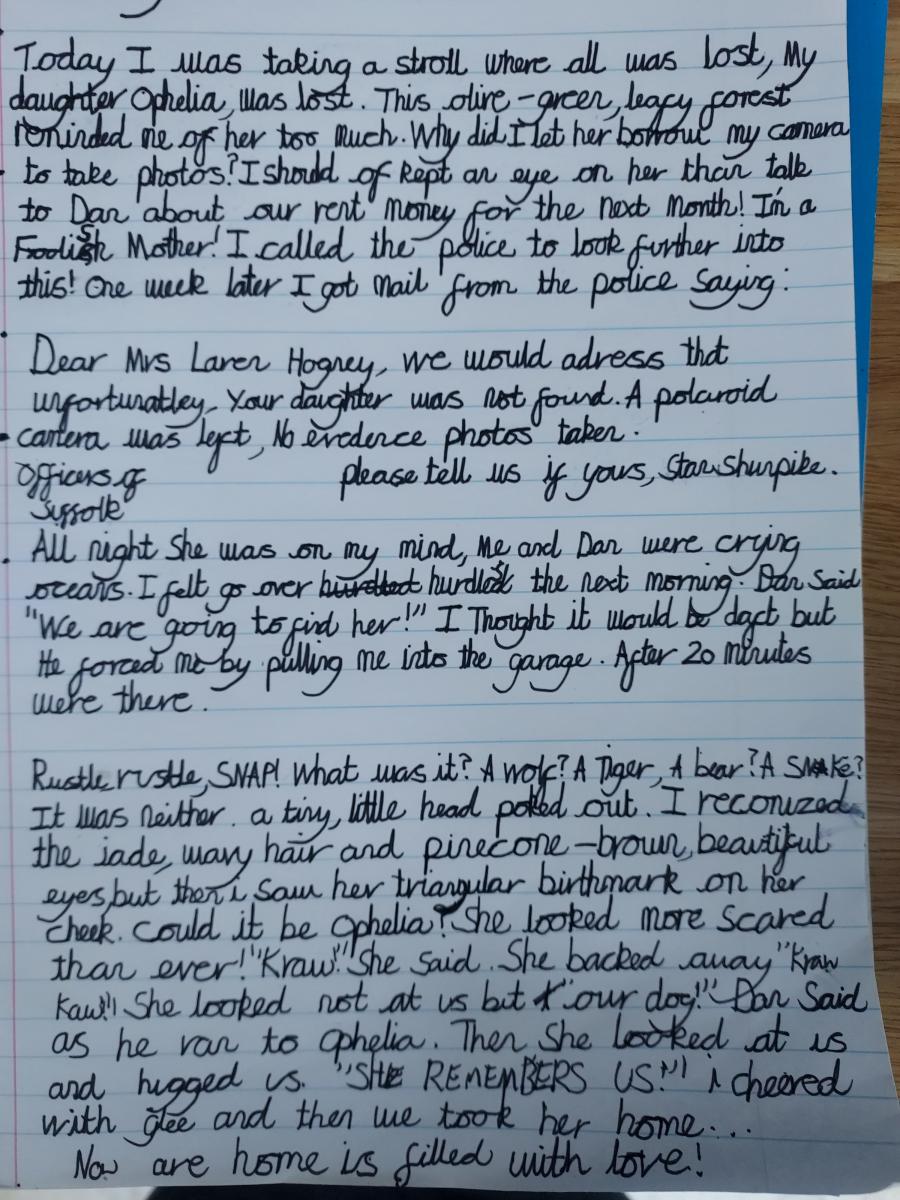 Today I was taking a stroll where all was lost, My
daughter Ophelia, was lost. This olive-green, leafy forest
reminded me of her too much. Why did I let her borrow my camera
to take photos? I should of kept an eye on her than talk
to Dan about our rent money for the next month! I'm a
Foolish Mother! I called the police to look further into
this! One week later I got mail from the police saying:
Dear Mrs Laren Hogney, we would adress that
unfortunatley, Your daughter was not found. A polaroid
camera was left, No evedence photos taken.
Officers of please tell us if yours, Stan Shunpike.
Suffolk
All night She was on my mind, Me and Dan were crying
oceans. I felt go over the next morning. Dan Said
"We are going to find her!" I Thought it would be daft but
He forced me by pulling me into the garage. After 20 minutes
were there.
Rustle, rustle, SNAP! What was it? A wolf? A Tiger, A bear? A SNAKE?
It was neither. a tiny, little head poked out. I reconized
the jade, wavy hair and pinecone-brown, beautiful
eyes, but then i saw her triangular birthmark on her
cheek. Could it be Ophelia? She looked more scared
than ever! "Kraw!" She said. She backed away "Kraw
Kaw!" She looked not at us but "our dog!" Dan Said
as he ran to Ophelia. Then She looked at us
and hugged us. "SHE REMEMBERS US!" i cheered
with glee and then we took her home...
Now are home is filled with love!